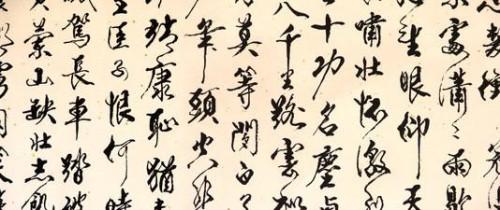 處瀟瀟雨歇
望眼仰天
嘯壯懷激
十功名塵與
八千里路雲和
莫等閒白了
年頭空悲
靖康恥猶未
臣子恨何時
駕長車踏破
蘭山缺壯志飢